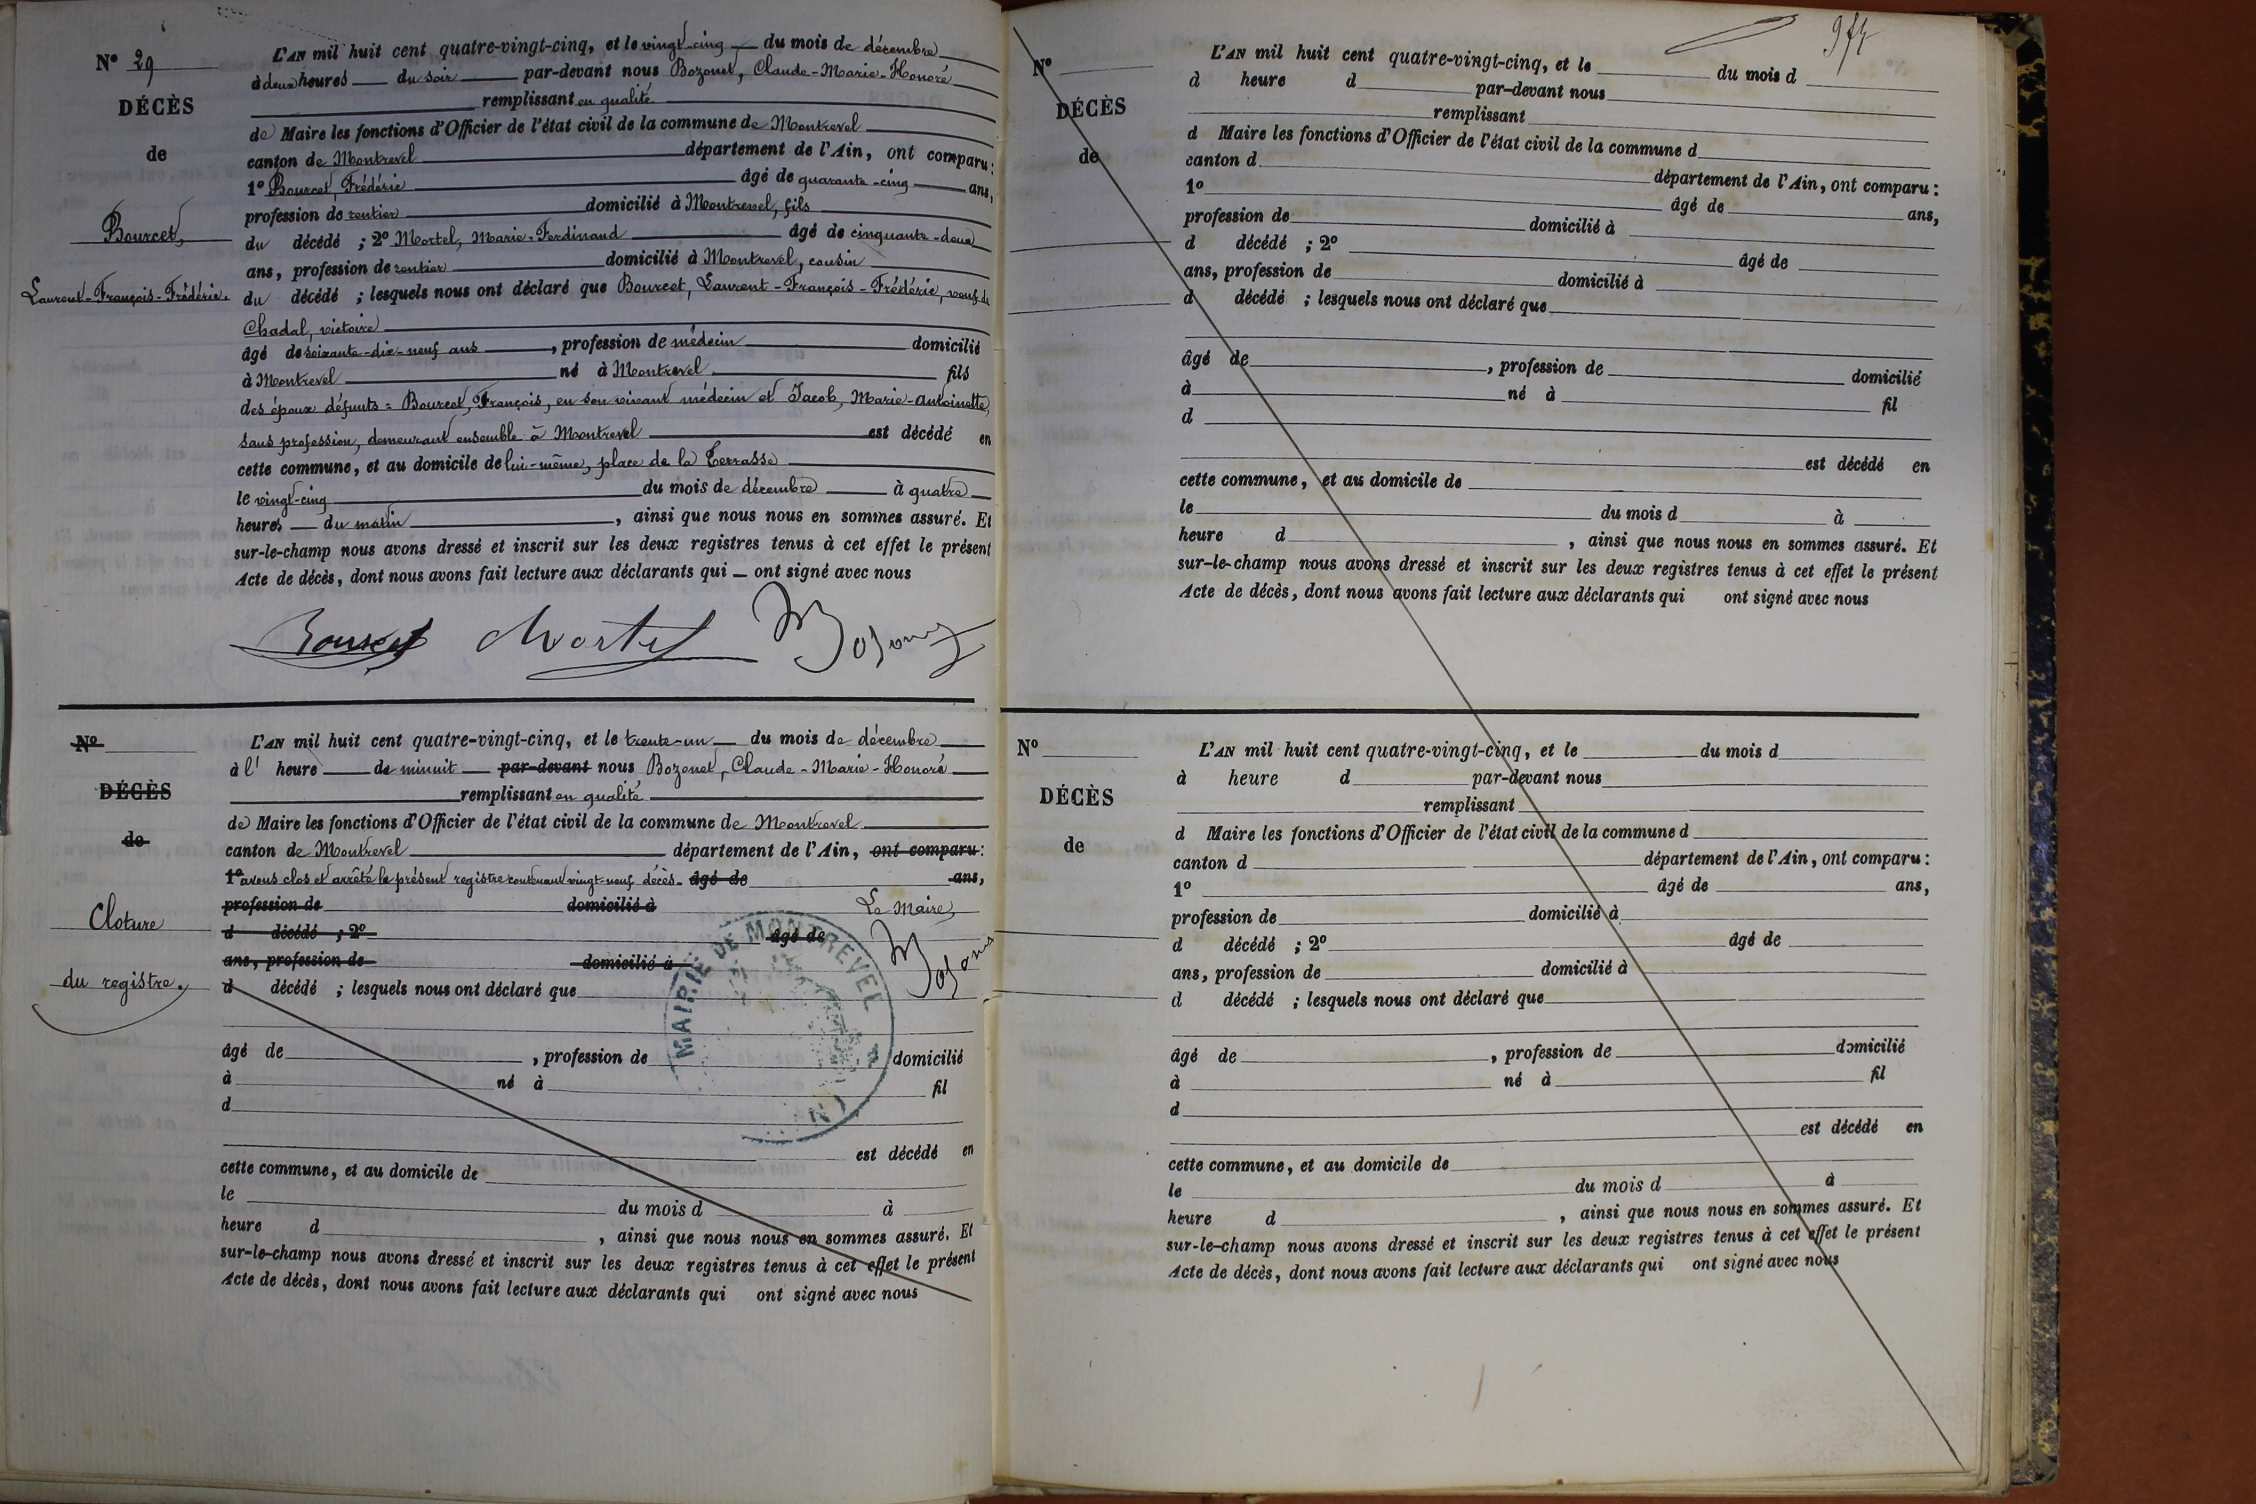 N° 29
DÉCÈS
de
Bourcet,
Laurent-François-Frédéric.
L'AN mil huit cent quatre-vingt-cinq, et le vingt-cinq du mois de décembre
à deux heures du soir par-devant nous Bozonet, Claude-Marie-Honoré
remplissant en qualité
de Maire les fonctions d'Officier de l'état civil de la commune de Montrevel
canton de Montrevel département de l'Ain, ont comparu :
1° Bourcet, Frédéric âgé de quarante-cinq ans,
profession de rentier domicilié à Montrevel, fils
du décédé ; 2° Mortel, Marie-Ferdinand âgé de cinquante-deux
ans, profession de rentier domicilié à Montrevel, cousin
du décédé ; lesquels nous ont déclaré que Bourcet, Laurent-François-Frédéric, veuf de
Chadal, victoire
âgé de soixante-dix-neuf ans, profession de médecin domicilié
à Montrevel né à Montrevel fils
des époux défunts = Bourcet, François, en son vivant médecin et Jacob, Marie-antoinette,
sans profession, demeurant ensemble à Montrevel est décédé en
cette commune, et au domicile de lui-même, place de la Terrasse
le vingt-cinq du mois de décembre à quatre
heures du matin, ainsi que nous nous en sommes assuré. Et
sur-le-champ nous avons dressé et inscrit sur les deux registres tenus à cet effet le présent
Acte de décès, dont nous avons fait lecture aux déclarants qui ont signé avec nous
Bourcet Mortel Bozonet
N°
DÉCÈS
de
Cloture
du registre.
L'AN mil huit cent quatre-vingt-cinq, et le trente-un du mois de décembre
à l' heure de minuit par-devant nous Bozonet, Claude-Marie-Honoré
remplissant en qualité
de Maire les fonctions d'Officier de l'état civil de la commune de Montrevel
canton de Montrevel département de l'Ain, ont comparu :
1° avons clos et arrêté le présent registre contenant vingt-neuf décès. âgé de ans,
profession de domicilié à Le Maire,
d décédé ; 2° âgé de
ans, profession de domicilié à Bozonet
d décédé ; lesquels nous ont déclaré que
MAIRIE DE MONTREVEL
(AIN)
âgé de , profession de domicilié
à né à fil
d
est décédé en
cette commune, et au domicile de
le du mois d à
heure d , ainsi que nous nous en sommes assuré. Et
sur-le-champ nous avons dressé et inscrit sur les deux registres tenus à cet effet le présent
Acte de décès, dont nous avons fait lecture aux déclarants qui ont signé avec nous
N°
DÉCÈS
de
L'AN mil huit cent quatre-vingt-cinq, et le du mois d
à heure d par-devant nous
remplissant
d Maire les fonctions d'Officier de l'état civil de la commune d
canton d département de l'Ain, ont comparu :
1° âgé de ans,
profession de domicilié à
d décédé ; 2° âgé de
ans, profession de domicilié à
d décédé ; lesquels nous ont déclaré que
âgé de , profession de domicilié
à né à fil
d
est décédé en
cette commune, et au domicile de
le du mois d à
heure d , ainsi que nous nous en sommes assuré. Et
sur-le-champ nous avons dressé et inscrit sur les deux registres tenus à cet effet le présent
Acte de décès, dont nous avons fait lecture aux déclarants qui ont signé avec nous
N°
DÉCÈS
de
L'AN mil huit cent quatre-vingt-cinq, et le du mois d
à heure d par-devant nous
remplissant
d Maire les fonctions d'Officier de l'état civil de la commune d
canton d département de l'Ain, ont comparu :
1° âgé de ans,
profession de domicilié à
d décédé ; 2° âgé de
ans, profession de domicilié à
d décédé ; lesquels nous ont déclaré que
âgé de , profession de domicilié
à né à fil
d
est décédé en
cette commune, et au domicile de
le du mois d à
heure d , ainsi que nous nous en sommes assuré. Et
sur-le-champ nous avons dressé et inscrit sur les deux registres tenus à cet effet le présent
Acte de décès, dont nous avons fait lecture aux déclarants qui ont signé avec nous